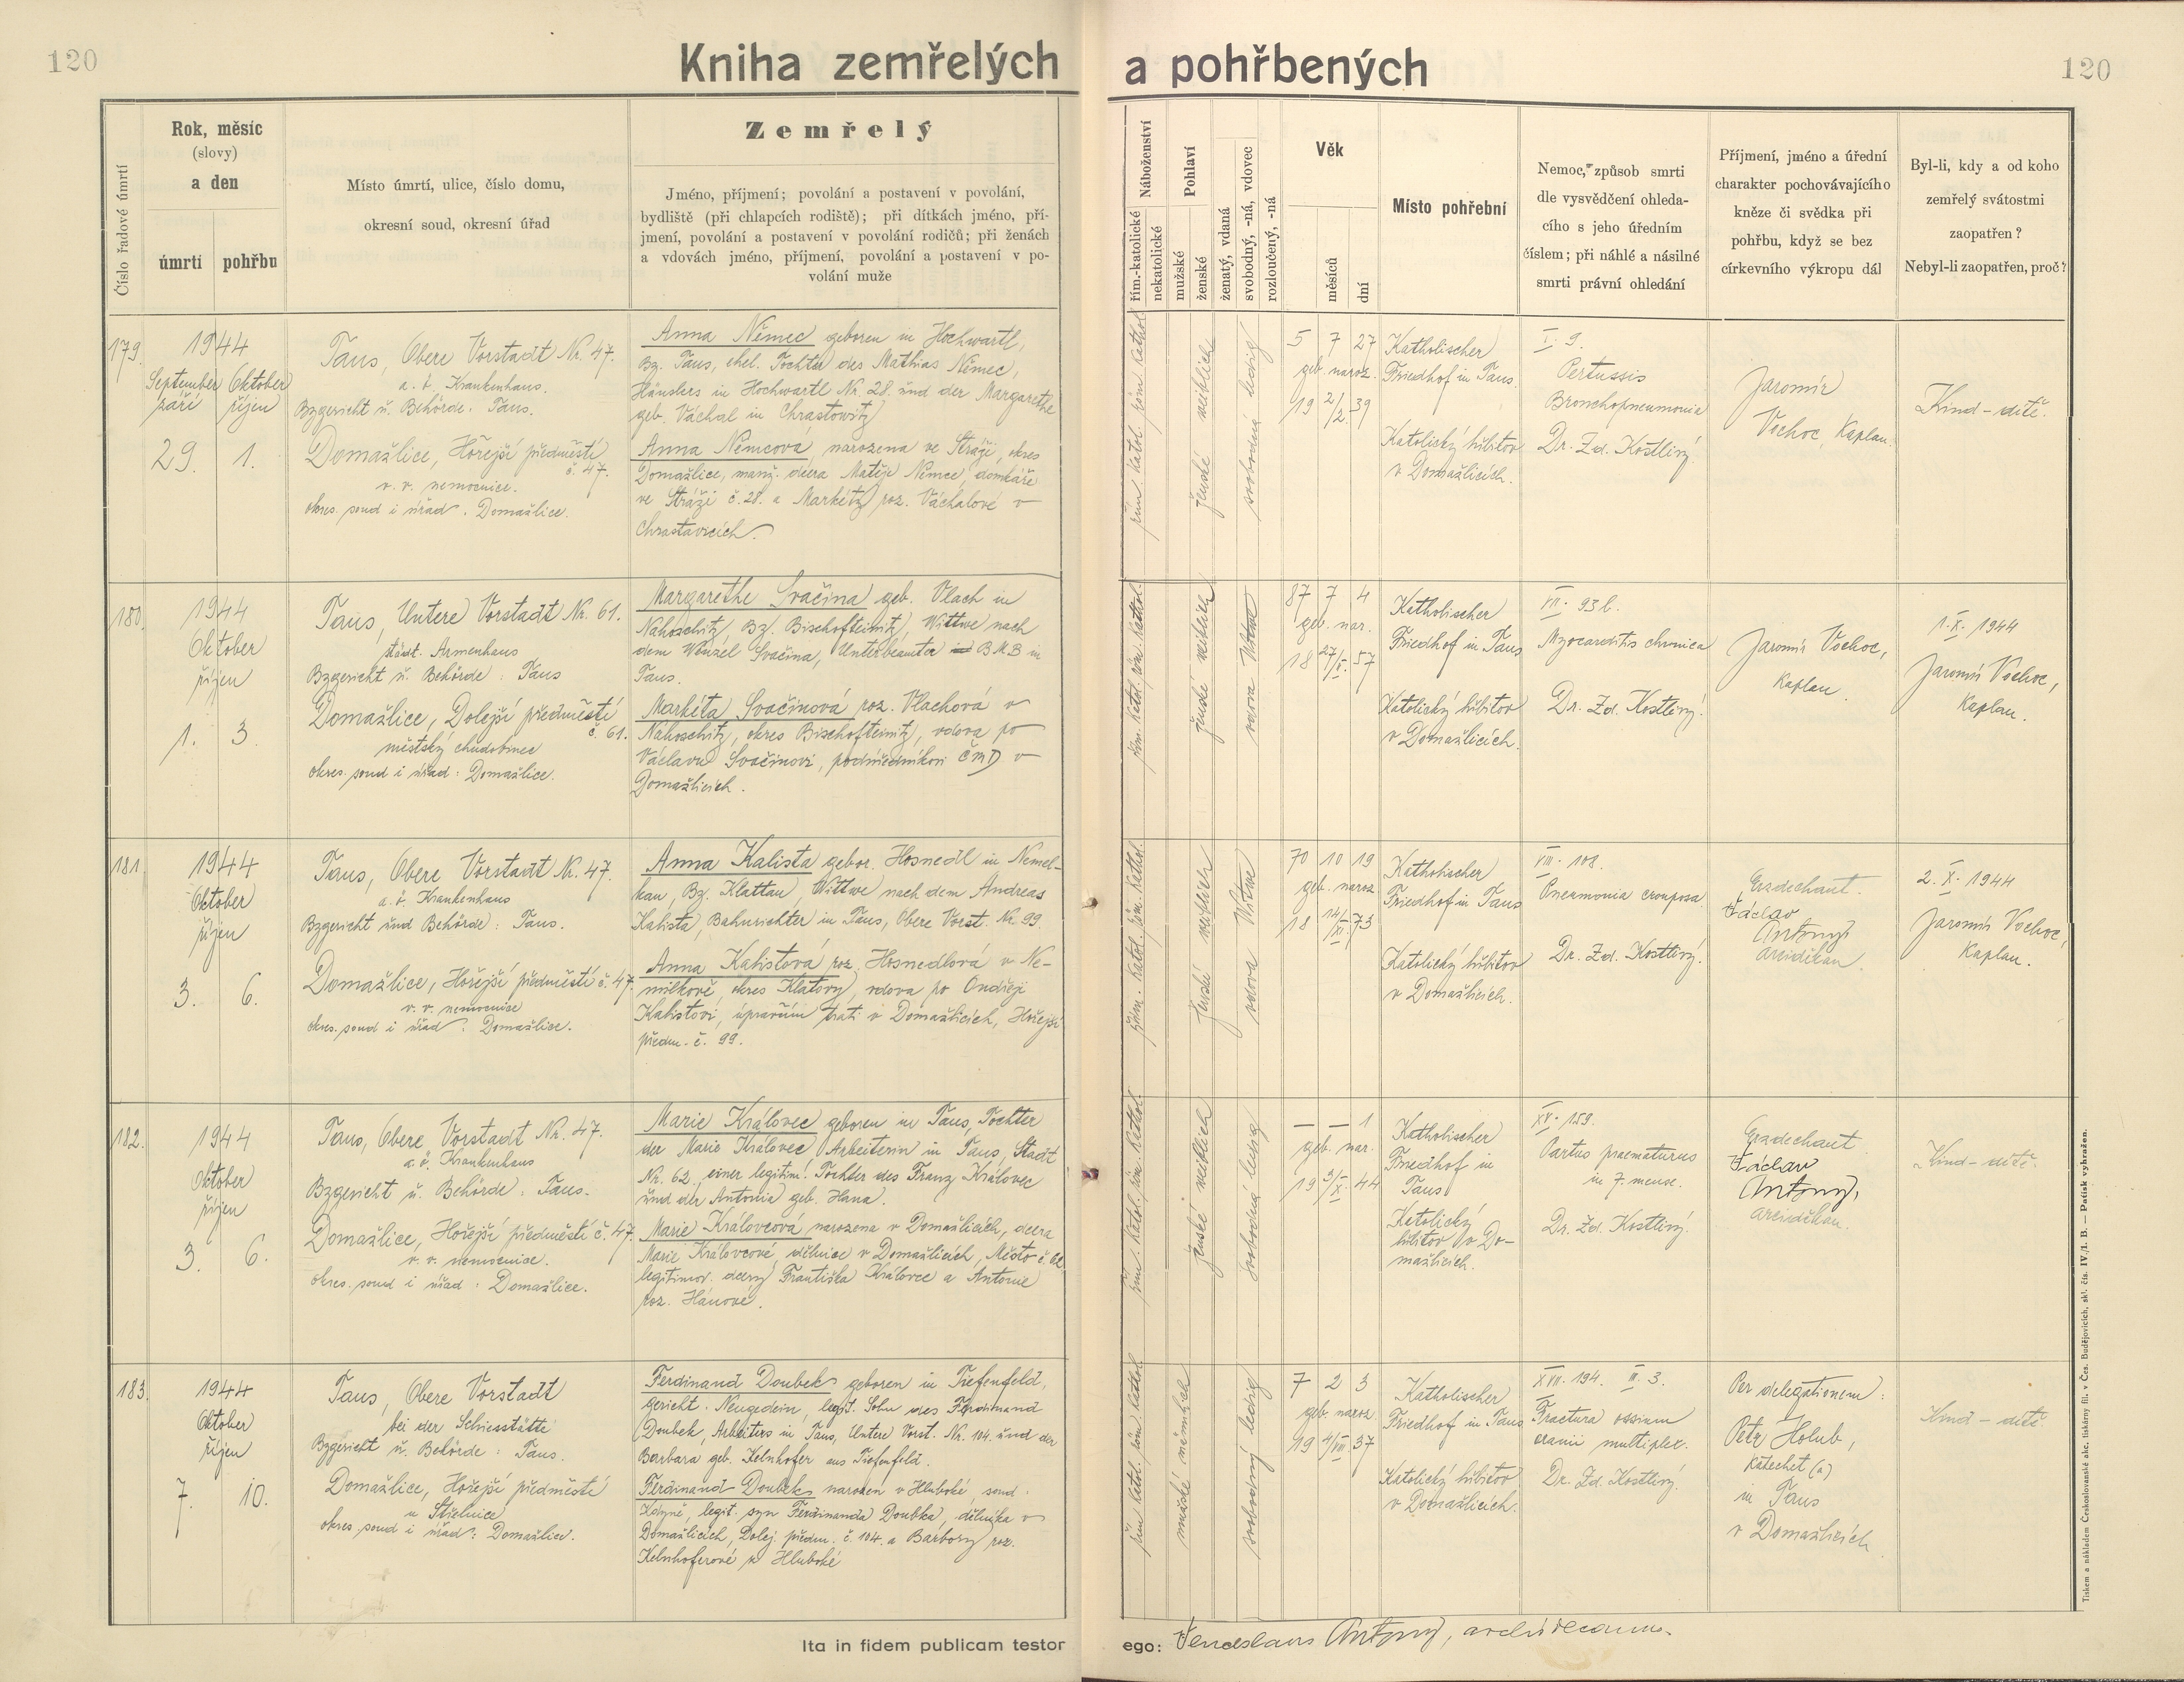 120
Kniha zemřelých a pohřbených
120
Číslo řadové úmrtí
Rok, měsíc
(slovy)
a den
úmrtí
pohřbu
Místo úmrtí, ulice, číslo domu,
okresní soud, okresní úřad
Zemřelý
Jméno, příjmení; povolání a postavení v povolání,
bydliště (při chlapcích rodiště); při dítkách jméno, pří-
jmení, povolání a postavení v povolání rodičů; při ženách
a vdovách jméno, příjmení, povolání a postavení v po-
volání muže
Náboženství
řím.-katolické
nekatolické
Pohlaví
mužské
ženské
ženatý, vdaná
svobodný, -ná, vdovec
rozloučený, -ná
Věk
měsíců
dní
Místo pohřební
Nemoc, způsob smrti
dle vysvědčení ohleda-
cího s jeho úředním
číslem; při náhlé a násilné
smrti právní ohledání
Příjmení, jméno a úřední
charakter pochovávajícího
kněze či svědka při
pohřbu, když se bez
církevního výkropu dál
Byl-li, kdy a od koho
zemřelý svátostmi
zaopatřen?
Nebyl-li zaopatřen, proč?
179.
1944
September Oktober
září říjen
29. 1.
Taus, Obere Vorstadt Nr. 47.
a. ö. Krankenhaus.
Bzgericht u. Behörde: Taus.
Domažlice, Hořejší předměstí
č. 47.
v. v. nemocnice.
okres. soud i úřad: Domažlice.
Anna Němec geboren in Hochwartl,
Bz. Taus, ehel. Tochter des Mathias Němec,
Häuslers in Hochwartl Nr. 28. und der Margarethe
geb. Váchal in Chrastowitz
Anna Němcová, narozena ve Stráži, okres
Domažlice, manž. dcera Matěje Němce, domkáře
ve Stráži č. 28. a Markéty roz. Váchalové v
Chrastavicích.
řím. katol. röm. kathol.
ženské weiblich
svobodná ledig
5 7 27
geb. naroz.
19 2/2. 39
Katholischer
Friedhof in Taus.
Katolický hřbitov
v Domažlicích.
I. 9.
Pertussis
Bronchopneumonia
Dr. Zd. Kostlivý
Jaromír
Vochoc, Kaplan.
Kind - dítě.
180.
1944
Oktober
říjen
1. 3.
Taus, Untere Vorstadt Nr. 61.
städt. Armenhaus
Bzgericht u. Behörde: Taus
Domažlice, Dolejší předměstí
č. 61.
městský chudobinec
okres. soud i úřad: Domažlice.
Margarethe Svačina geb. Vlach in
Nahoschitz, Bz. Bischofteinitz, Wittwe nach
dem Wenzel Svačina, Unterbeamter BMB in
Taus.
Markéta Svačinová roz. Vlachová v
Nahoschitz, okres Bischofteinitz, vdova po
Václavu Svačinovi, podúředníkovi ČMD v
Domažlicích.
řím. katol. röm. kathol.
ženské weiblich
vdova Witwe
87 7 4
geb. nar.
18 27/II. 57
Katholischer
Friedhof in Taus
Katolický hřbitov
v Domažlicích.
VII. 93 b.
Myocarditis chronica
Dr. Zd. Kostlivý.
Jaromír Vochoc,
Kaplan.
1. X. 1944
Jaromír Vochoc,
Kaplan.
181.
1944
Oktober
říjen
3. 6.
Taus, Obere Vorstadt Nr. 47.
a. ö. Krankenhaus
Bzgericht und Behörde: Taus.
Domažlice, Hořejší předměstí č. 47.
v. v. nemocnice
okres. soud i úřad: Domažlice.
Anna Kalista gebor. Hosnedl in Nemel-
kau, Bz. Klattau, Wittwe nach dem Andreas
Kalista, Bahnrichter in Taus, Obere Vorst. Nr 99.
Anna Kalistová roz. Hosnedlová v Ne-
milkově, okres Klatovy, vdova po Ondřeji
Kalistovi, upravčím trati v Domažlicích, Hořejší
předm. č. 99.
řím. katol. röm. kathol.
ženské weiblich
vdova Witwe
70 10 19
geb. naroz.
18 14/XI. 73
Katholischer
Friedhof in Taus
Katolický hřbitov
v Domažlicích.
VIII. 108.
Pneumonia crouposa
Dr. Zd. Kostlivý.
Erzdechant.
Václav
Antony,
arciděkan.
2. X. 1944
Jaromír Vochoc,
Kaplan.
182.
1944
Oktober
říjen
3. 6.
Taus, Obere Vorstadt Nr. 47.
a. ö. Krankenhaus
Bzgericht u. Behörde: Taus.
Domažlice, Hořejší předměstí č. 47.
v. v. nemocnice.
okres. soud i úřad: Domažlice.
Marie Královec geboren in Taus, Tochter
der Marie Královec, Arbeiterin in Taus, Stadt
Nr. 62, einer legitim. Tochter des Franz Královec
und der Antonia geb. Hana.
Marie Královcová narozena v Domažlicích, dcera
Marie Královcové, dělnice v Domažlicích, Město č. 62
legitimov. dcery Františka Královce a Antonie
roz. Hánové.
řím. katol. röm. kathol.
ženské weiblich
svobodná ledig
— — 1
geb. nar.
19 3/X. 44
Katholischer
Friedhof in
Taus
Katolický
hřbitov v Do-
mažlicích.
XV. 159.
Partus praematurus
in 7. mense.
Dr. Zd. Kostlivý.
Erzdechant
Václav
Antony,
arciděkan.
Kind - dítě.
183.
1944
Oktober
říjen
7. 10.
Taus, Obere Vorstadt
bei der Schiesstätte
Bzgericht u. Behörde: Taus.
Domažlice, Hořejší předměstí
u Střelnice
okres. soud i úřad: Domažlice.
Ferdinand Doubek geboren in Tiefenfeld,
Gericht: Neugedein, legit. Sohn des Ferdinand
Doubek, Arbeiters in Taus, Untere Vorst. Nr. 104. und der
Barbara geb. Kelnhofer aus Tiefenfeld.
Ferdinand Doubek narozen v Hluboké, soud.
Kdyně, legit. syn Ferdinanda Doubka, dělníka v
Domažlicích, Dolej. předm. č. 104. a Barbory roz.
Kelnhoferové z Hluboké
řím. katol. röm. kathol.
mužské männlich
svobodný ledig
7 2 3
geb. naroz.
19 4/VIII. 37
Katholischer
Friedhof in Taus
Katolický hřbitov
v Domažlicích.
XVII. 194. III. 3.
Fractura ossium
cranii multiplex.
Dr. Zd. Kostlivý.
Per delegationem:
Petr Holub,
Katechet (a)
in Taus
v Domažlicích
Kind - dítě
Ita in fidem publicam testor ego: Venceslaus Antony, archidecanus.
Tiskem a nákladem Českoslovanské akc. tiskárny fil. v Čes. Budějovicích, skl. čís. IV./1. B. — Patisk vyhražen.